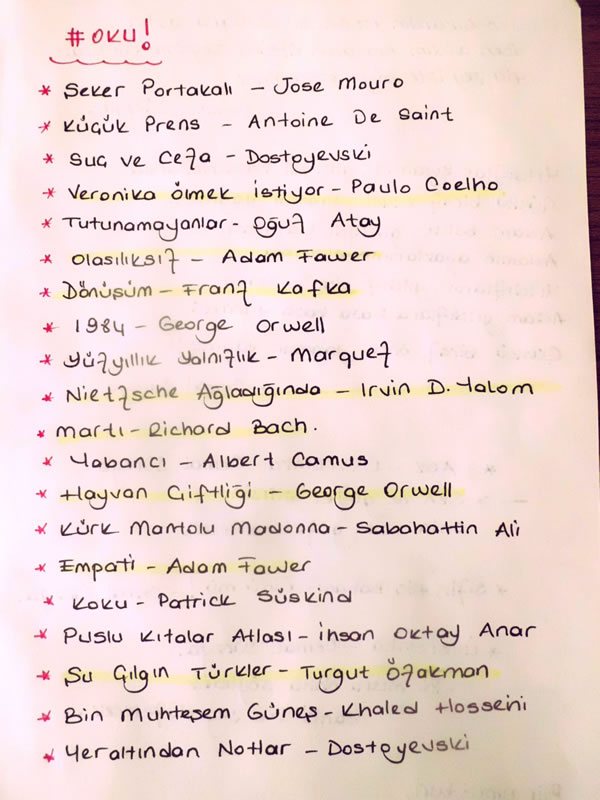 #OKU!
* Şeker Portakalı - Jose Mouro
* Küçük Prens - Antoine De Saint
* Suç ve Ceza - Dostoyevski
* Veronika Ölmek İstiyor - Paulo Coelho
* Tutunamayanlar - Oğuz Atay
* Olasılıksız - Adam Fawer
* Dönüşüm - Franz Kafka
* 1984 - George Orwell
* Yüzyıllık Yalnızlık - Marquez
* Nietzsche Ağladığında - Irvin D. Yalom
* Martı - Richard Bach.
* Yabancı - Albert Camus
* Hayvan Çiftliği - George Orwell
* Kürk Mantolu Madonna - Sabahattin Ali
* Empati - Adam Fawer
* Koku - Patrick Süskind
* Puslu Kıtalar Atlası - İhsan Oktay Anar
* Şu Çılgın Türkler - Turgut Özakman
* Bin Muhteşem Güneş - Khaled Hosseini
* Yeraltından Notlar - Dostoyevski